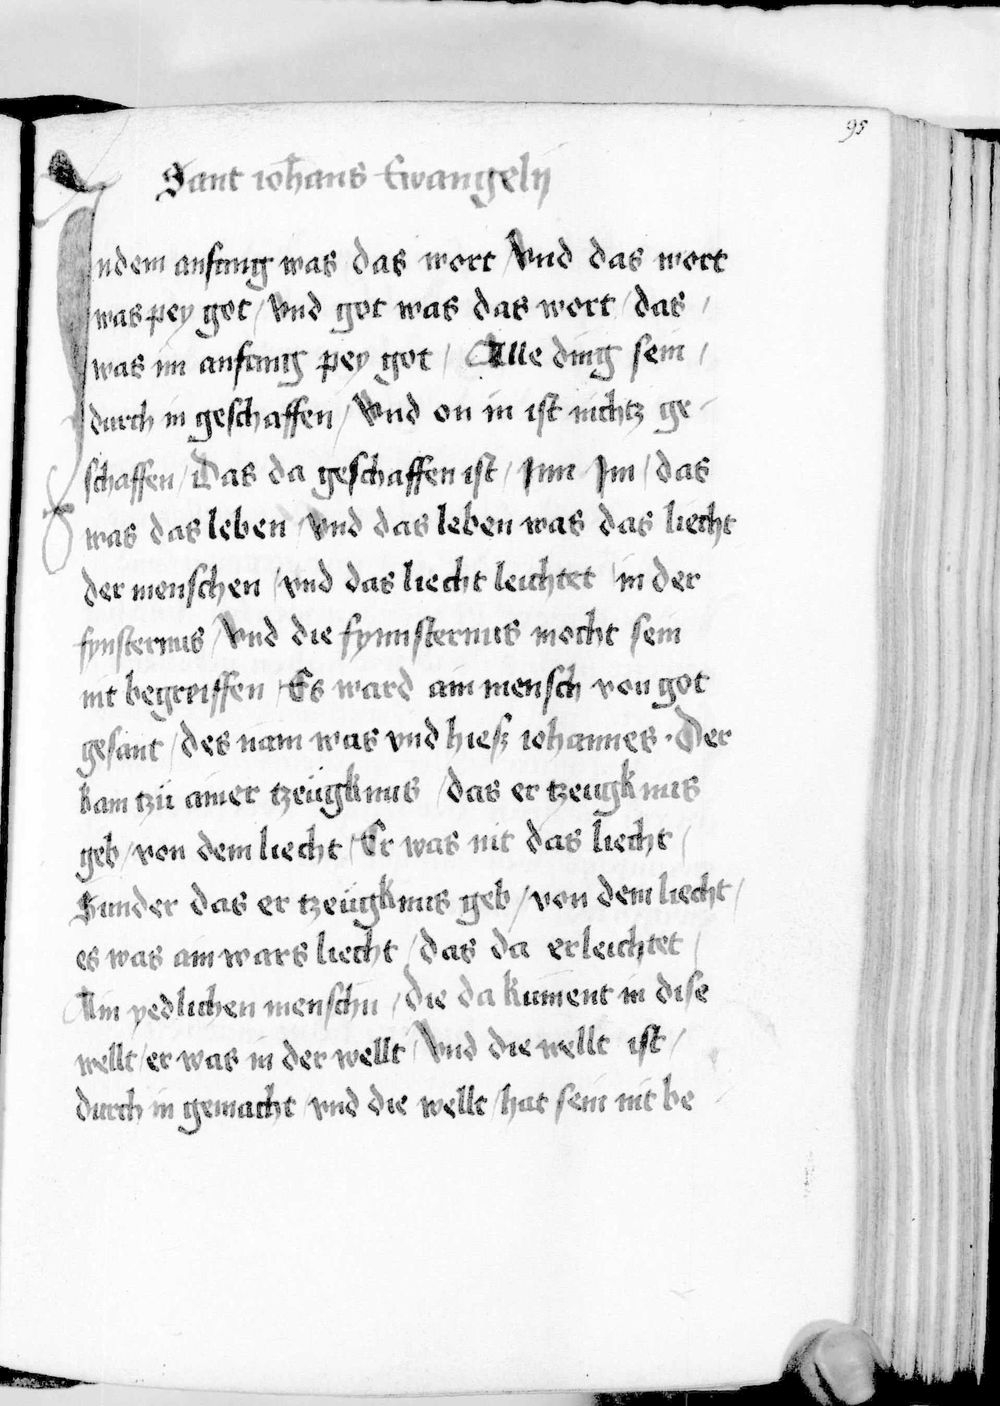 95
Sant iohans Ewangelÿ
Indem anfang was das wort / Vnd das wort
was pey got / Vnd got was das wort / das /
was im anfang pey got / Alle ding sein /
durch in geschaffen / Vnd on in ist nichtz ge-
schaffen / Das da geschaffen ist / Inn Im / das
was das leben / Vnd das leben was das liecht
der menschen / vnd das liecht leichtet / in der
fynsternus / Vnd die fynnsternus mocht sein
nit begreiffen / Es ward ain mensch von got
gesant / des nam was vnd hiesz iohannes · Der
kam tzü ainer tzeügknus / das er tzeugknus
geb / von dem liecht / Er was nit das liecht /
Sunder das er tzeügknus geb / von dem liecht /
es was ain wars liecht / das da erleichtet /
Ain yedlichen menschn / die da kument in dise
wellt / er was in der wellt / Vnd die wellt ist /
durch in gemacht / vnd die wellt / hat sein nit be